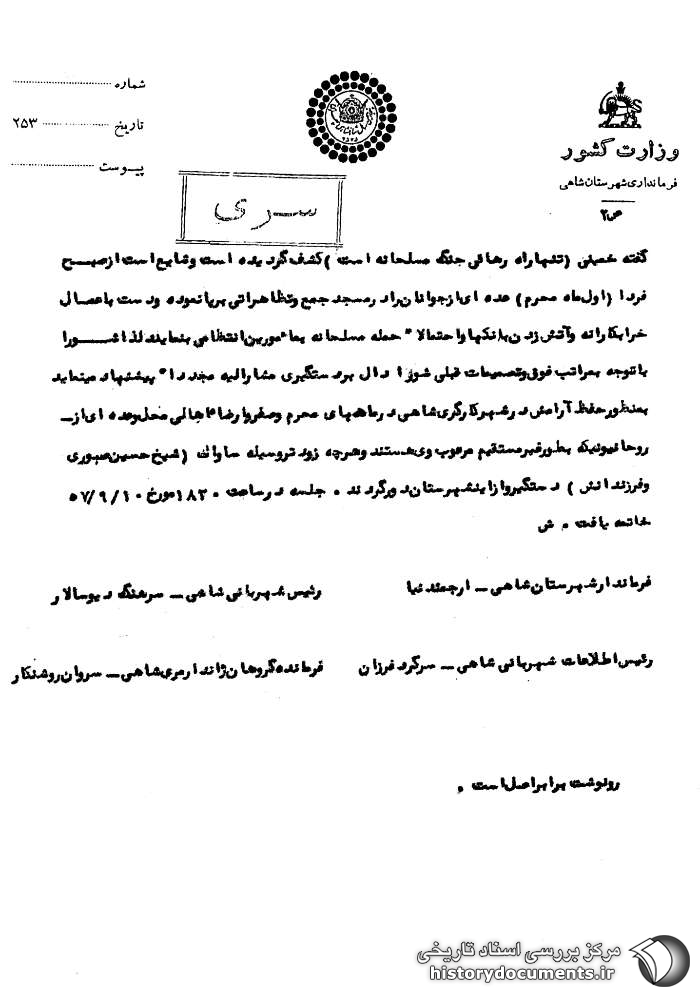 وزارت کشور
فرمانداری شهرستان شاهی
ص۲
شماره
تاریخ ۲۵۳
پیوست
سری
گفته خمینی (تنهاراه رهائی جنگ مسلحانه است) کشف گردیده است وشایع است ازصبح
فردا (اول ماه محرم) عده ای ازجوانان را در مسجد جمع وتظاهراتی برپا نموده ودست باعمال
خرابکارانه وآتش زدن بانکها واحتمالا" حمله مسلحانه بمامورین انتظامی بنمایند لذا شورا
باتوجه بمراتب فوق وتصمیمات قبلی شورا دال بردستگیری مشارالیه مجددا" پیشنهاد مینماید
بمنظور حفظ آرامش درشهرکارگری شاهی درماههای محرم وصفر وارضاء اهالی محل وعده ای از
روحانیونیکه بطورغیرمستقیم مرعوب وی هستند وهرچه زودتر وسیله ساواک (شیخ حسین صبوری
وفرزندانش) دستگیر وازاینشهرستان دورگردند . جلسه درساعت ۱۸۳۰ مورخ ۵۷/۹/۱۰
خاتمه یافت . ش
فرماندارشهرستان شاهی ـ ارجمندنیا
رئیس شهربانی شاهی ـ سرهنگ دیوسالار
رئیس اطلاعات شهربانی شاهی ـ سرگرد فرزان
فرمانده گروهان ژاندارمری شاهی ـ سروان روشنکار
رونوشت برابراصل است .
مرکز بررسی اسناد تاریخی
historydocuments.ir